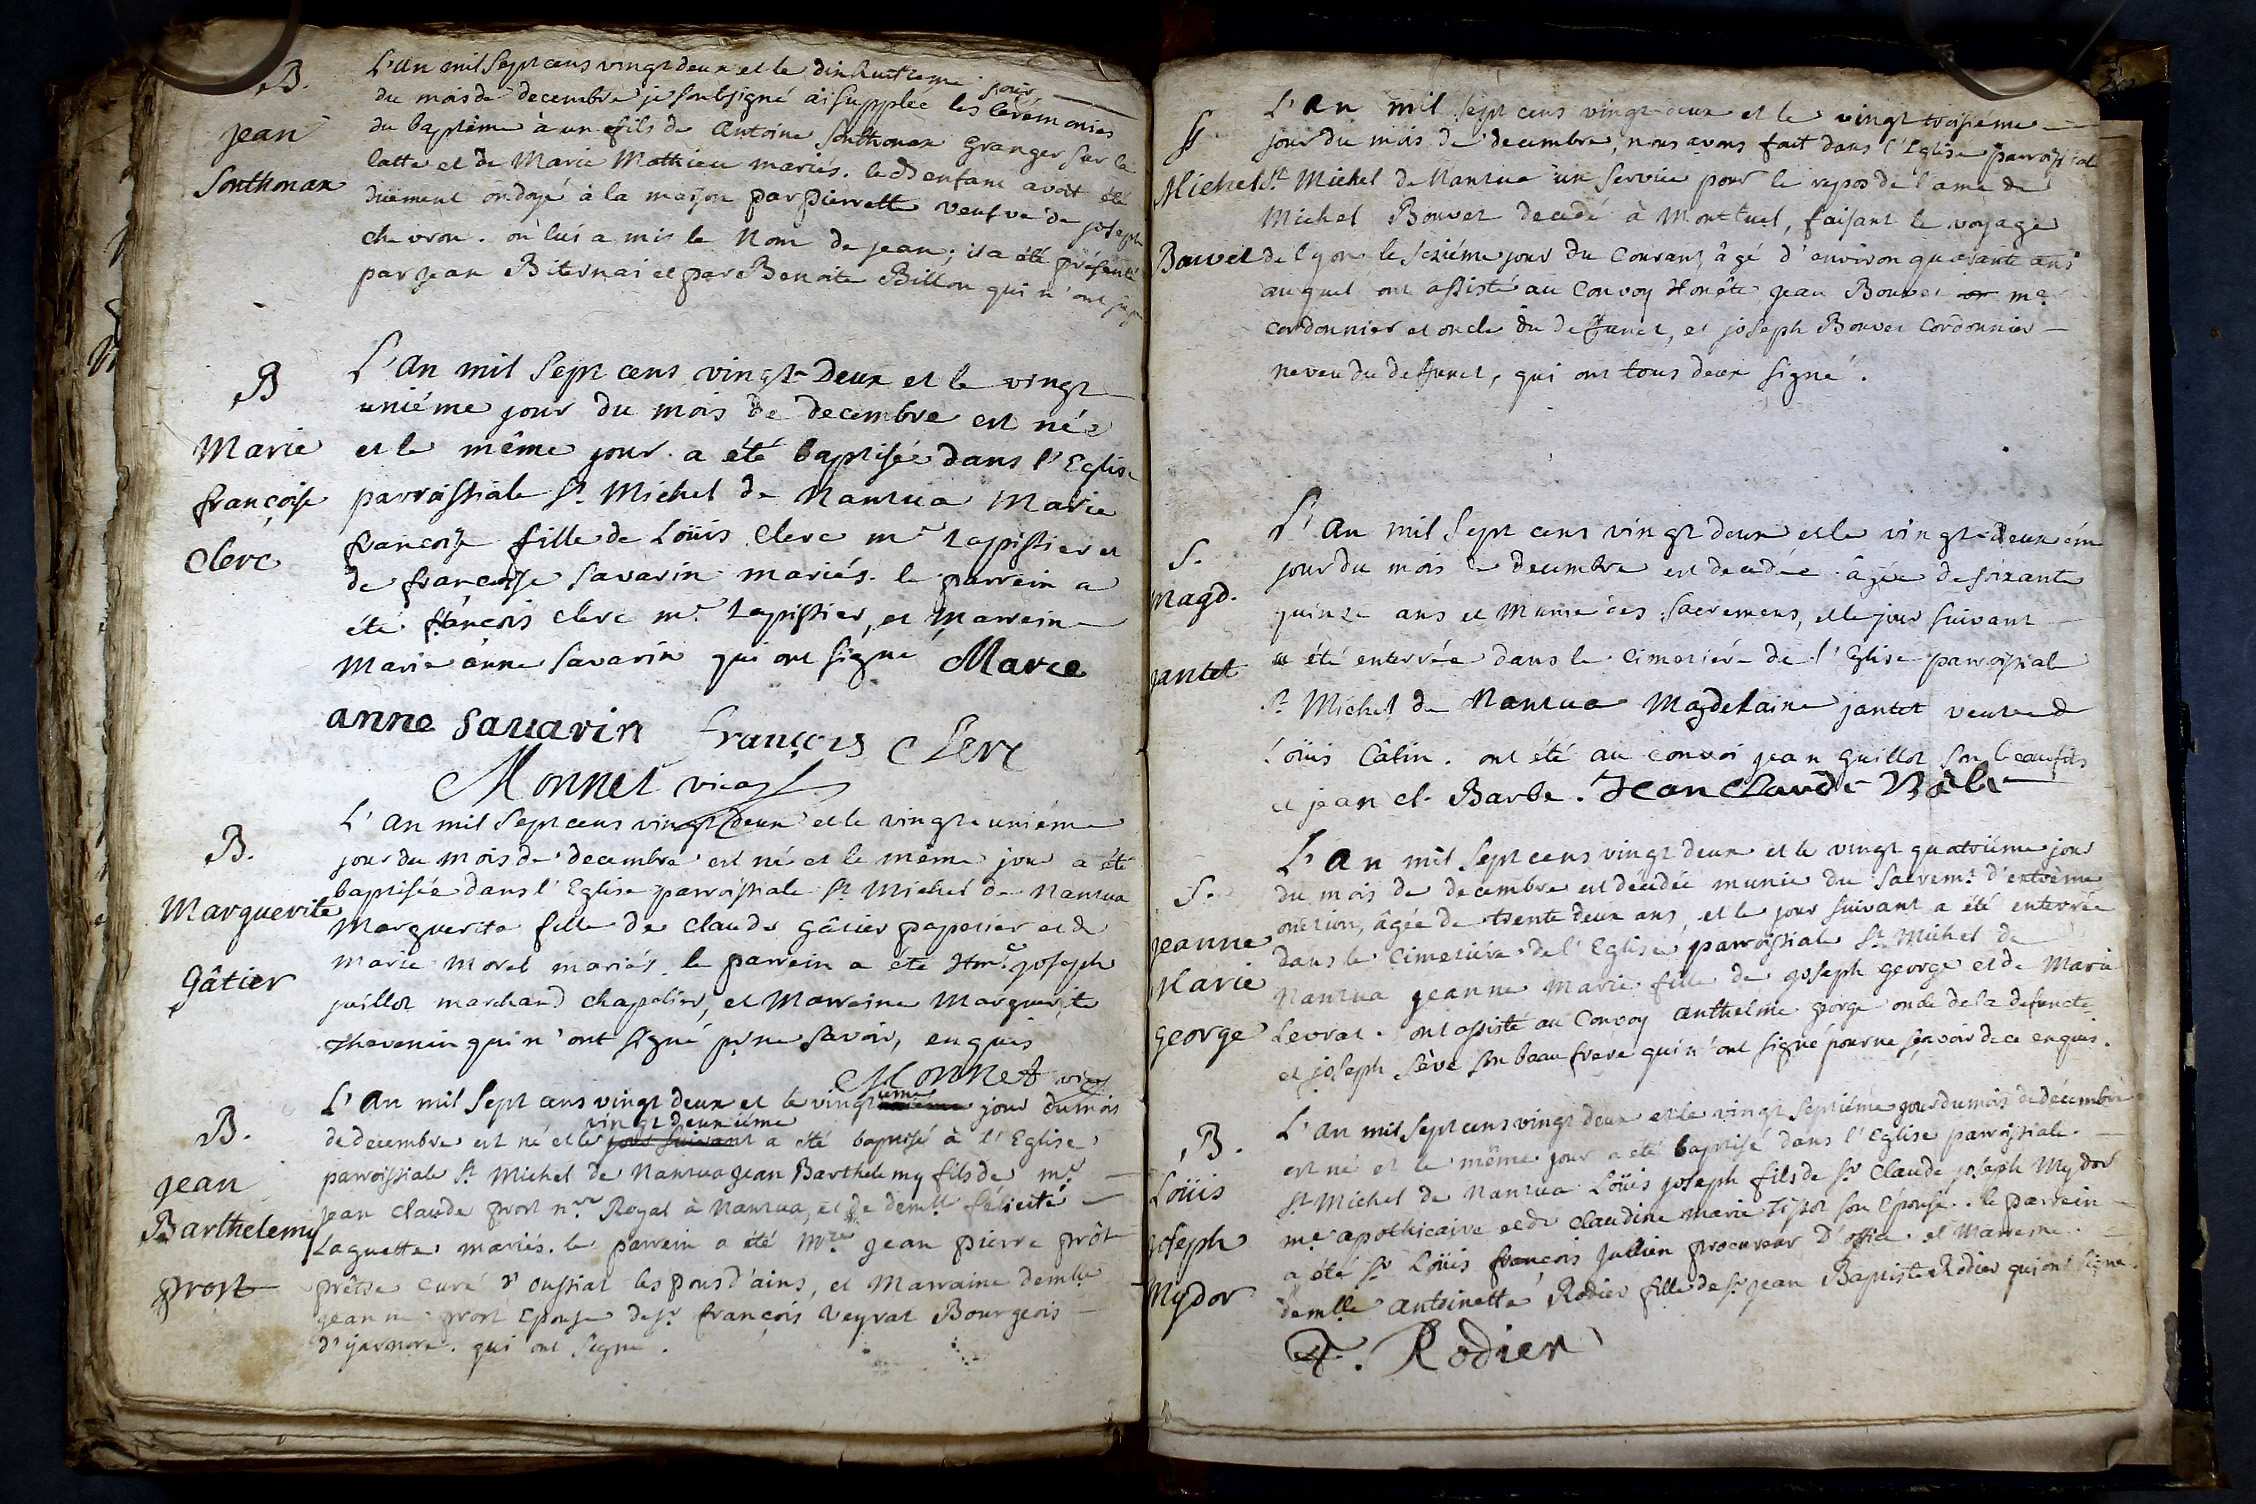 B.
jean
Sonthonax
L'an mil sept cens vingt deux et le dix huitieme jour
du mois de decembre je soubsigné ai supplée les ceremonies
du baptême à un fils de antoine Sonthonax granger sur la
latte et de Marie Mathieu mariés. led enfant avoit été
düement ondoyé à la maison par pierrette veufve de joseph
chevron. on lui a mis le Nom de jean; il a été présenté
par jean Biternai et par Benoite Billon qui n'ont
B
Marie
françoise
Clerc
L'an mil Sept cens vingt-Deux et le vingt
uniéme jour du mois de decembre est née
et le même jour a été baptisée dans l'Eglise
parroissiale St. Michel de Nantua Marie
francoise fille de Loüis Clerc mre tapissier et
de françoise Savarin mariés. le parrein a
été françois clerc mre tapissier, et Marreine
Marie anne Savarin qui ont signé Marie
anne Sauarin François Clerc
Monnet vicre
B.
Marguerite
Gâtier
L'an mil Sept cens vingt deux et le vingt unieme
jour du mois de decembre est né et le même jour a été
baptisée dans l'Eglise parroissiale St. Michel de Nantua
Marguerite fille de Claude gâtier papetier et de
marie morel mariés. le parrein a été Honn. joseph
juillot marchand chapelier, et Marreine Marguerite
Thevenin qui n'ont signé pr ne savoir, enquis
Monnet vicre
B.
jean
Barthelemy
prost
L'an mil Sept cens vingt deux et le vingt ieme jour du mois
vingt deuxiéme
de decembre est né et le jour suivant a été baptisé à l'Eglise
parroissiale St. Michel de Nantua jean Barthelemy fils de mre
jean claude prost nre Royal à Nantua, et de demlle félicité
Laguette mariés. le parrein a été Mre jean pierre prôt
prêtre curé d'oussiat les pons d'ains, et Marraine demlle
jeanne prost Epouse de sr françois Veyrat Bourgeois
d'ijarnore. qui ont signé.
Sf.
Michel
Bouvet
L'an mil sept cens vingt-deux et le vingt troisieme
jour du mois de decembre, nous avons fait dans l'Eglise parroissiale
St. Michel de Nantua un service pour le repos de l'ame de
Michel Bouvet decedé à Montluel, faisant le voyage
de lyon le seziéme jour du Courant, âgé d'environ quarante ans
auquel ont assisté au Convoy Honête jean Bouvet mre
cordonnier et oncle du deffunct, et joseph Bouvet cordonnier
neveu du deffunct, qui ont tous deux signé.
S.
Magd.
jantet
L'an mil Sept cens vingt deux et le vingt-deuxiém
jour du mois de decembre est decedée âgée de soixante
quinze ans et Munie des sacremens, et le jour suivant
a été enterrée dans le Cimetiére de l'Eglise parroissiale
St Michel de Nantua Magdelaine jantet veuve d
Loüis Câtin. ont été au convoi jean guillot son beaufils
et jean cl. Barbe. Jean Claude
S.
jeanne
Marie
george
L'an mil Sept cens vingt deux et le vingt quatriéme jour
du mois de decembre est decedée munie du Sacremt. d'extrême
onction, âgée de trente deux ans, et le jour suivant a été enterrée
dans le Cimetiére de l'Eglise parroissiale St. Michel de
Nantua jeanne Marie fille de joseph george et de Marie
Levrat. ont assisté au Convoy anthelme george oncle de la defuncte
et joseph Sève son beau frere qui n'ont signé pour ne sçavoir de ce enquis.
B.
Loüis
joseph
Mydor
L'an mil Sept cens vingt deux et le vingt Septiéme jour du mois de décembre
est né et le même jour a été baptisé dans l'Eglise parroissiale
St Michel de Nantua Loüis joseph fils de Sr Claude joseph Mydor
me apothicaire et de Claudine marie Tissot son Epouse. le parrein
a été Sr Loüis françois Jullien procureur D'office et Marreine
demlle antoinette Rodier fille de Sr jean Baptiste Rodier qui ont signé.
A. Rodier